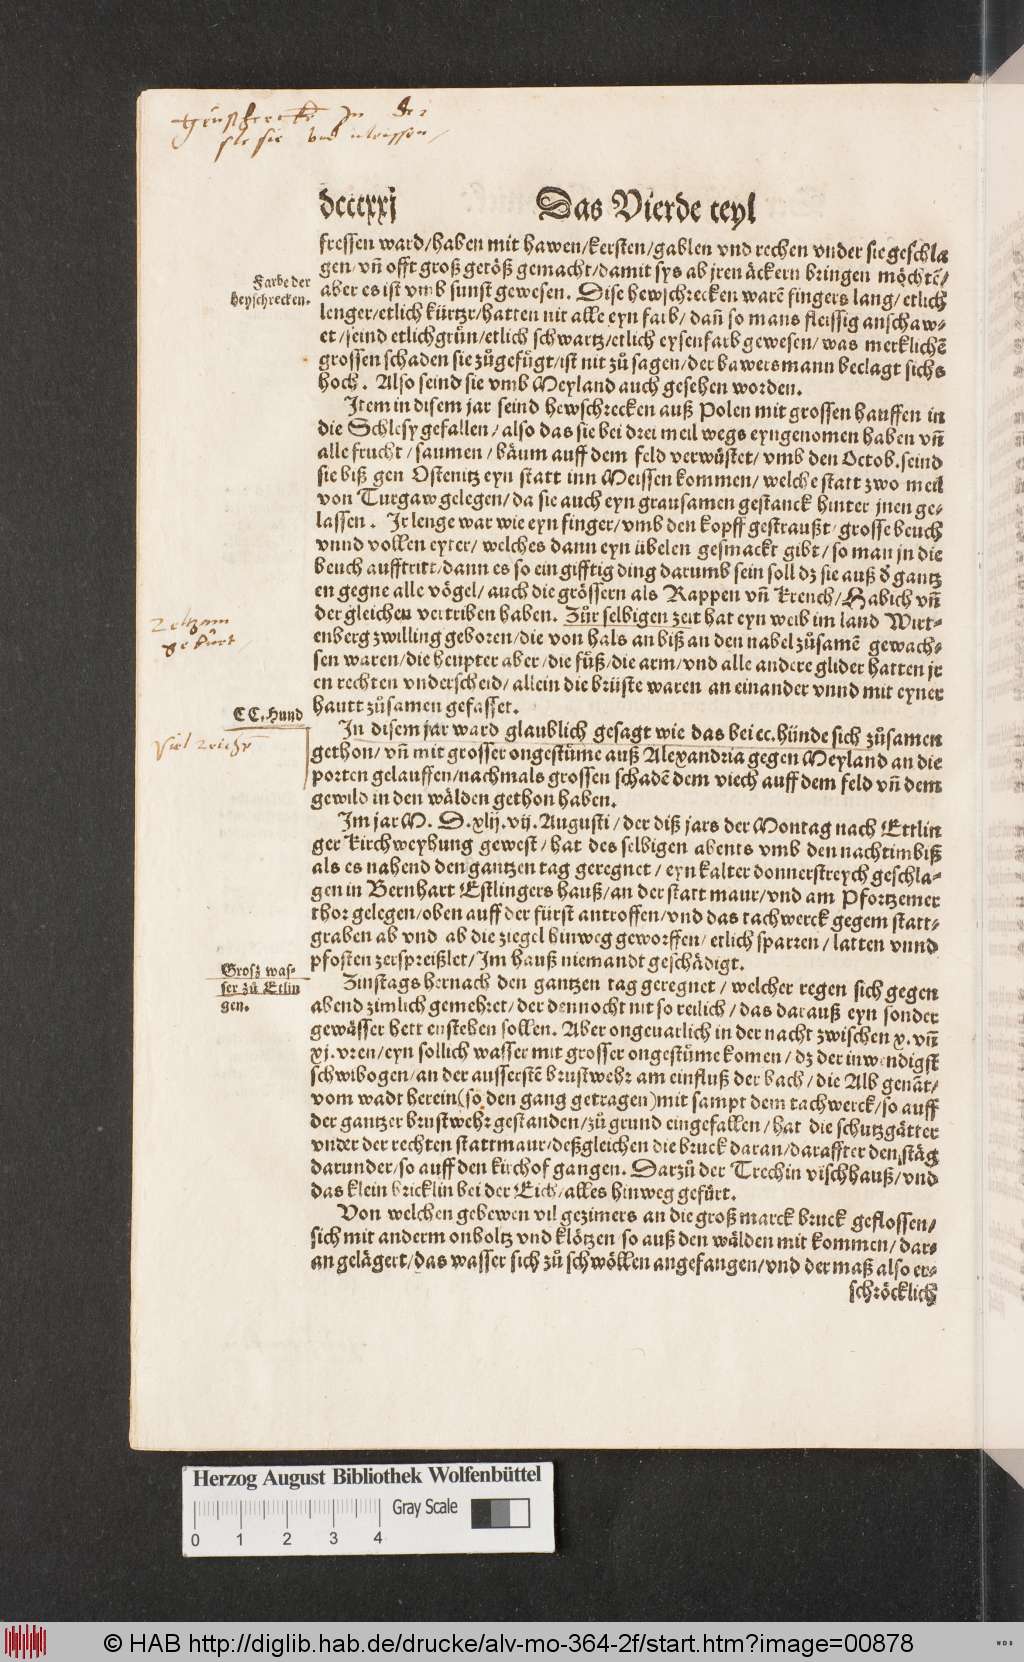 In der
vnd
dcccxxj Das Vierde teyl
fressen ward/haben mit hawen/kersten/gablen vnd rechen vnder sie geschla
gen/vñ offt groß getöß gemacht/damit sys ab jren äckern bringen möchtē/
Farbe der
heyschrecken.
aber es ist vmb sunst gewesen. Dise hewschrecken warē fingers lang/etlich
lenger/etlich kürtzr/hatten nit alle eyn farb/dañ so mans fleissig anschaw-
et/seind etlich grůn/etlich schwartz/etlich eysenfarb gewesen/was merklichē
grossen schaden sie zůgefůgt/ist nit zů sagen/der bawersmann beclagt sichs
hoch. Also seind sie vmb Meyland auch gesehen worden.
Item in disem jar seind hewschrecken auß Polen mit grossen hauffen in
die Schlesy gefallen/also das sie bei drei meil wegs eyngenomen haben vñ
alle frucht/saumen/bäum auff dem feld verwüstet/vmb den Octob. seind
sie biß gen Ostenitz eyn statt inn Meissen kommen/welche statt zwo meil
von Turgaw gelegen/da sie auch eyn grausamen gestanck hinter jnen ge-
lassen. Ir lenge war wie eyn finger/vmb den kopff gestraußt/grosse beuch
vnnd vollen eyter/welches dann eyn übelen gesmackt gibt/so man jn die
beuch aufftritt/dann es so ein gifftig ding darumb sein soll dz sie auß d̕ gantz
en gegne alle vögel/auch die grössern als Rappen vñ Krench/Habich vñ
der gleichen vertriben haben. Zůr selbigen zeit hat eyn weib im land Wirt-
enberg zwilling geboren/die von hals an biß an den nabel zůsamē gewach-
sen waren/die heupter aber/die fůß/die arm/vnd alle andere glider hatten jr
en rechten vnderscheid/allein die brüste waren an einander vnnd mit eyner
hautt zůsamen gefasset.
CC. Hund
In disem jar ward glaublich gesagt wie das bei cc. hünde sich zůsamen
gethon/vñ mit grosser ongestůme auß Alexandria gegen Meyland an die
porten gelauffen/nachmals grossen schadē dem viech auff dem feld vñ dem
gewild in den wälden gethon haben.
Im jar M. D. xlij. vij. Augusti/der diß jars der Montag nach Ettlin
ger Kirchweyhung gewest/hat des selbigen abents vmb den nachtimbiß
als es nahend den gantzen tag geregnet/eyn kalter donnerstreych geschla-
gen in Bernhart Estlingers hauß/an der statt maur/vnd am Pfortzemer
thor gelegen/oben auff der fürst antroffen/vnd das tachwerck gegem statt-
graben ab vnd ab die ziegel hinweg geworffen/etlich sparren/latten vnnd
pfosten zerspreißlet/Im hauß niemandt geschädigt.
Grosz was-
ser zů Etlin
gen.
Zinstags hernach den gantzen tag geregnet/welcher regen sich gegen
abend zimlich gemehret/der dennocht nit so reilich/das darauß eyn sonder
gewässer hett ensteben sollen. Aber ongeuarlich in der nacht zwischen x. vñ
xj. vren/eyn sollich wasser mit grosser ongestůme komen/dz der inwendigst
schwibogen/an der aussersteē brustwehr am einfluß der bach/die Alb genāt/
vom wadt herein(so den gang getragen)mit sampt dem tachwerck/so auff
der gantzer brustwehr gestanden/zů grund eingefallen/hat die schutzgätter
vnder der rechten stattmaur/deßgleichen die bruck daran/daraffter den stäg
darunder/so auff den kirchof gangen. Darzů der Trechin vischhauß/vnd
das klein bricklin bei der Eich/alles hinweg gefürt.
Von welchen gebewen vil gezimers an die groß marck bruck geflossen/
sich mit anderm onholtz vnd klötzen so auß den wälden mit kommen/dar-
an gelägert/das wasser sich zů schwöllen angefangen/vnd der maß also er-
schröcklich
Herzog August Bibliothek Wolfenbüttel
Gray Scale
0 1 2 3 4
© HAB http://diglib.hab.de/drucke/alv-mo-364-2f/start.htm?image=00878